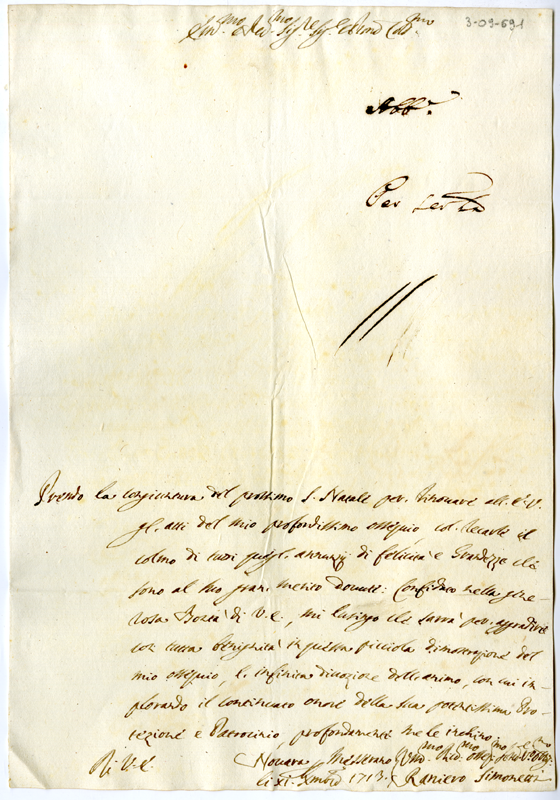 3-09-691
Em.mo e Rev.mo Sig.re Sig.r Pron Col.mo
Abb.
Per
Prendo la congiuntura del prossimo S. Natale per rinovare all'E.V.
gl. atti del mio profondissimo ossequio col recarle il
colmo di tutti quegl. annunzj di felicità e Grandezze che
sono al suo gran merito dovute: Confidato nella gene
rosa Bontà di V.E., mi lusingo che sarrà per aggradire
con tutta benignità in questa picciola dimostrazione del
mio ossequio, l'infinita divozione dell'animo, con cui im
plorando il continuato onore della sua potentissima Pro
tezzione e Patrocinio profondamente me le inchino
Di V.E.
Novara
li XI. Xmbre 1713. Raniero Simonetti